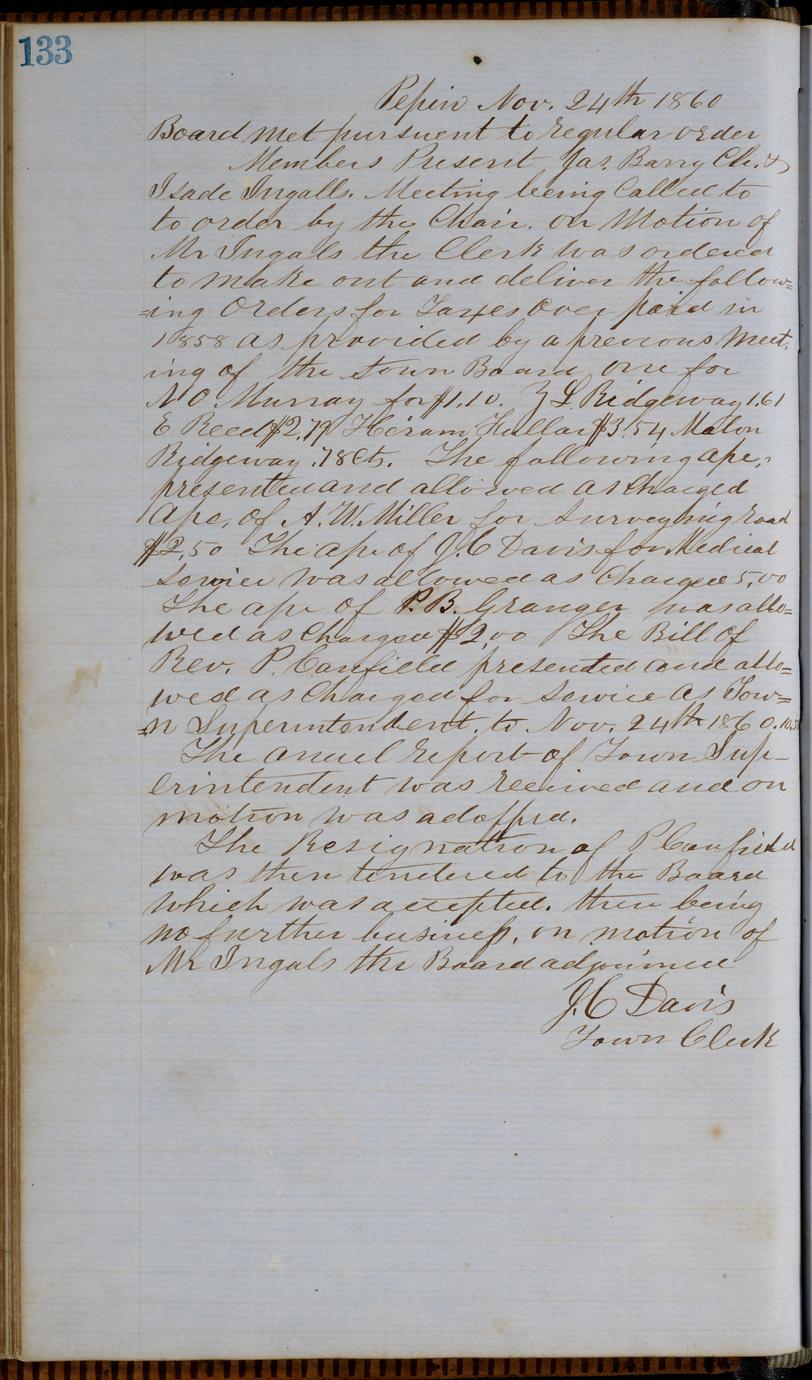 133
Pepin Nov. 24th 1860
Board met pursuent to regular order
Members Present Jas. Barry Ch. &
Isade Ingalls. Meeting being Called to
to order by the Chair. on Motion of
Mr Ingals the Clerk was ordered
to make out and deliver the follow=
=ing Orders for Taxes Over paid in
1858 as provided by a previous Meet,
ing of the town Board one for
N O. Murray for $1.10. Z L Ridgeway 1.61
E Reed $2,79 Hiram Fullar $3.54 Malon
Ridgeway .78 Cts. The following apc,s
presented and allowed as Charged
Apc, of A. W. Miller for Surveying road
$2,50 The apc of J. C Davis for Medical
Service was allowed as Charged 5,00
The apc of P. B. Granger was allo=
wed as Charged $2,00 The Bill of
Rev. P. Canfield presented and allo=
wed as Charged for Service as Tow=
=n Superintendent. to Nov. 24th 1860.
The anuel report of Town Sup-
erintendent was received and on
motion was adopted.
The Resignation of P Canfield
was then tendered to the Board
which was accepted. there being
no further business, on motion of
Mr Ingals the Board adjourned
J. C Davis
Town Clerk